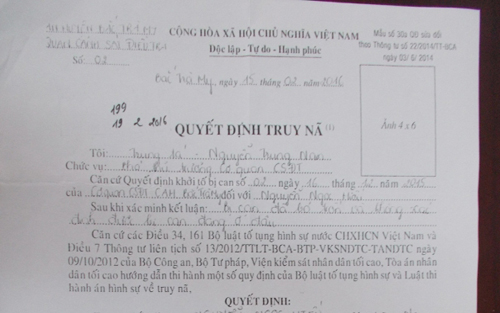 CỘNG HÒA XÃ HỘI CHỦ NGHĨA VIỆT NAM
Độc lập - Tự do - Hạnh phúc
Mẫu số 30a QĐ sửa đổi
theo Thông tư số 22/2014/TT-BCA
ngày 03/6/2014
Số 02
Bắc Trà My, ngày 15 tháng 02 năm 2016
199
19 2 2016
QUYẾT ĐỊNH TRUY NÃ (1)
Ảnh 4x6
Tôi: Trung tá - Nguyễn Trung Nam
Chức vụ: Phó Thủ trưởng Cơ quan CSĐT
Căn cứ Quyết định khởi tố bị can số 02 ngày 16 tháng 12 năm 2015
của Cơ quan CSĐT CAH đối với Nguyễn Ngọc
Sau khi xác minh kết luận: Bị can đã bỏ trốn và không xác
định được bị can đang ở đâu
Căn cứ các Điều 34, 161 Bộ luật tố tụng hình sự nước CHXHCN Việt Nam và
Điều 7 Thông tư liên tịch số 13/2012/TTLT-BCA-BTP-VKSNDTC-TANDTC ngày
09/10/2012 của Bộ Công an, Bộ Tư pháp, Viện kiểm sát nhân dân tối cao, Tòa án nhân
dân tối cao hướng dẫn thi hành một số quy định của Bộ luật tố tụng hình sự và Luật thi
hành án hình sự về truy nã,
QUYẾT ĐỊNH: